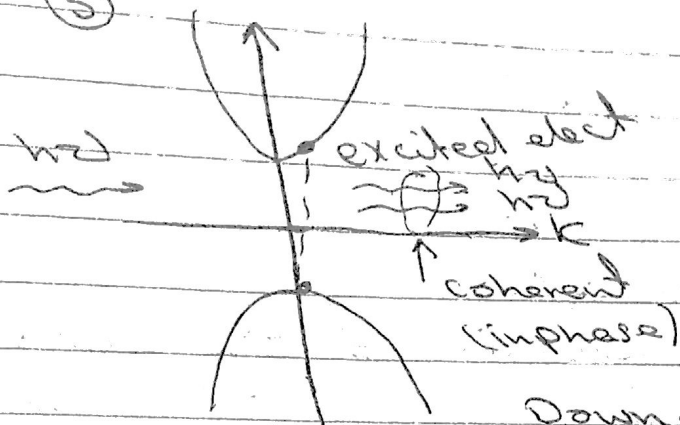 3
hν
excited elect
hν
hν
k
coherent
(inphase)
Down